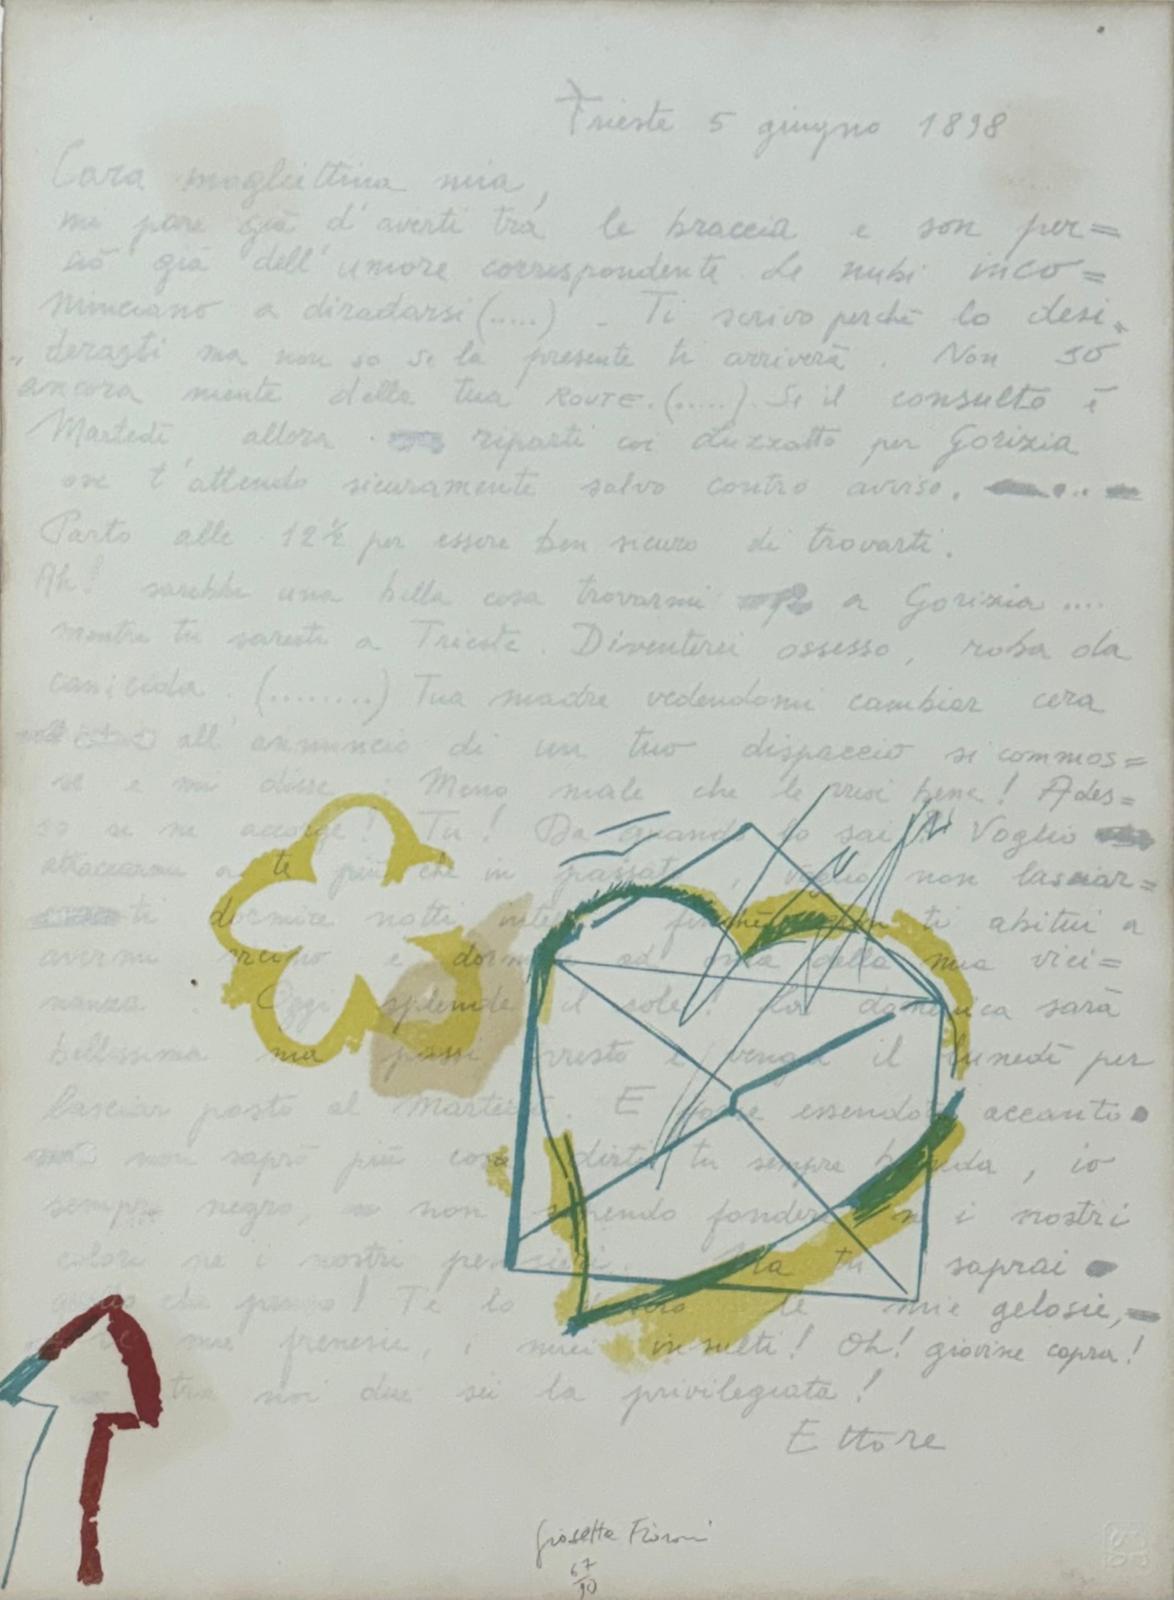 Trieste 5 giugno 1898
Cara mogliettina mia,
mi pare già d'averti tra le braccia e son per=
ciò già dell'umore corrispondente. Le nubi inco=
minciano a diradarsi (.....) - Ti scrivo perchè lo desi"
"derasti ma non so se la presente ti arriverà. Non so
ancora niente della tua ROUTE. (.....) Se il consulto è
Martedì allora riparti coi Luzzatto per Gorizia
ove t'attendo sicuramente salvo contro avviso.
Parto alle 12½ per essere ben sicuro di trovarti.
Ah! sarebbe una bella cosa trovarmi a Gorizia ....
mentre tu saresti a Trieste. Diventerei ossesso, roba da
canicida. (........) Tua madre vedendomi cambiar cera
all'annuncio di un tuo dispaccio si commos=
se e mi disse: Meno male che le vuoi bene! Ades=
so se ne accorge! Tu! Da quando lo sai? Voglio
attaccarmi a te più che in passato, voglio non lasciar=
ti dormire notti intere finchè non ti abitui a
avermi vicino e dormire ad onta della mia vici=
nanza. Oggi splende il sole! La domenica sarà
bellissima ma passi presto e venga il lunedì per
lasciar posto al Martedì. E forse essendoti accanto
non saprò più cosa dirti tu sempre bionda, io
sempre negro, non sapendo fondere nè i nostri
colori nè i nostri pensieri. Ma tu saprai
quello che penso! Te lo dicono le mie gelosie,
le mie frenesie, i miei insulti! Oh! giovine capra!
tra noi due sei la privilegiata!
Ettore
Giosetta Fioroni
67/90